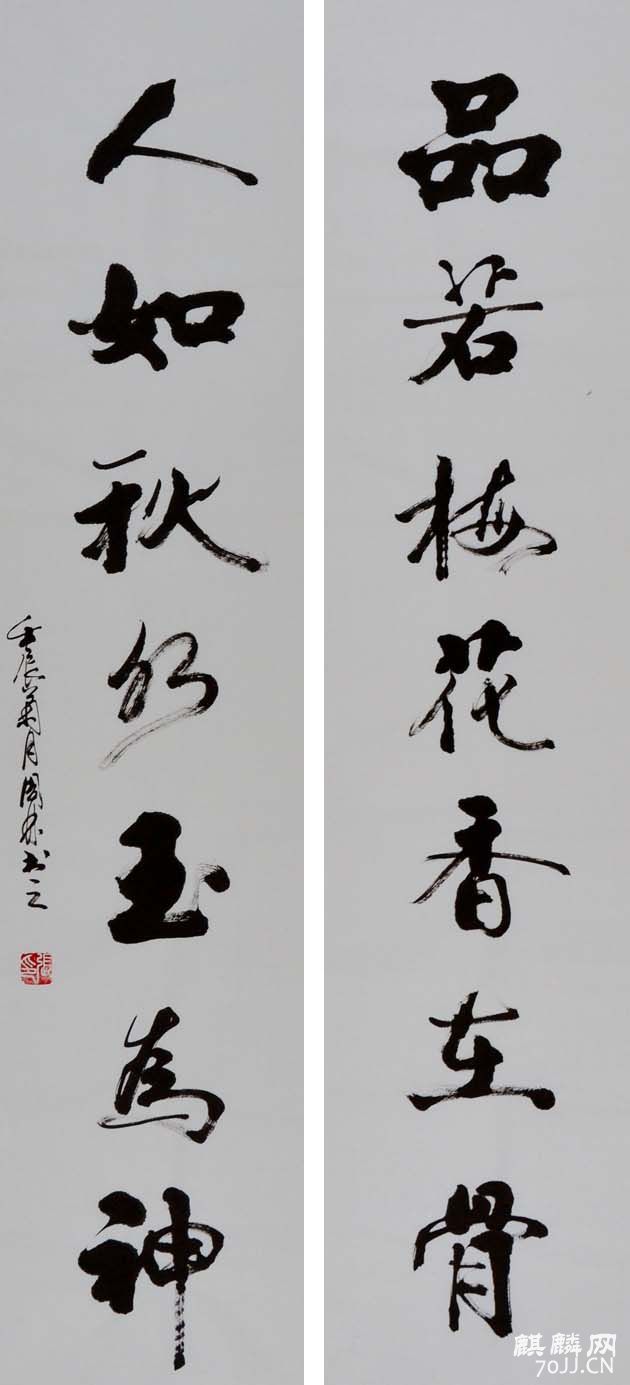 品若梅花香在骨
人如秋水玉为神
壬辰菊月国林书之
麒麟网
70JJ.CN